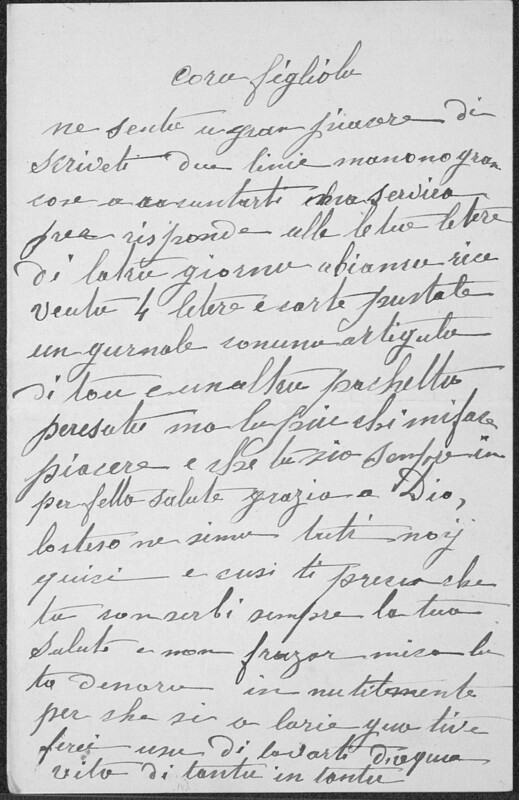 cora figliola
ne sento u gran piacere di
scriveti due linie manonogran
cose a racuntarti ma servira
per risponde alle letue letere
di latru giornu abiamu rice
ventu 4 letere e carte pustale
un gurnale conuno artigulo
di tou e unaltru pachettu
peresute ma lu piu chi mi face
piacere e che tu sio sempre in
perfetto salute grazia a Dio,
losteso ne simu tuti noij
quici e cusi ti precu che
tu conserbi sempre la tua
salute e non frazar mica lu
to denaru inutilmente
per che si a larie qua tive
ferci unu di lavarti dioqua
vita di tantu in tantu